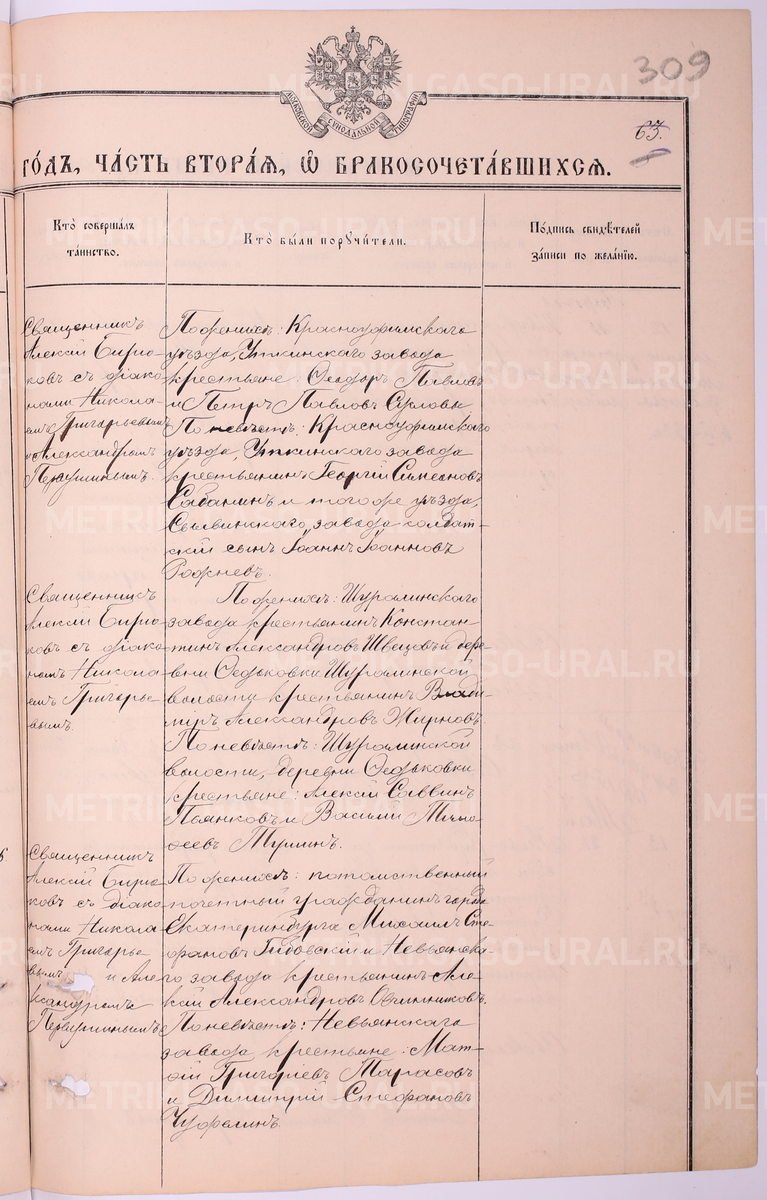 309
МОСКОВСКОЙ СѴНОДАЛЬНОЙ ТИПОГРАФІИ
63.
ГО́ДЪ, ЧА́СТЬ ВТОРА́Я, Ѽ БРАКОСОЧЕТА́ВШИХСЯ.
Кто̀ соверша́лъ
та́инство.
Кто̀ бы́ли порꙋчи́тели.
По́дпись свидѣ́телей
за́писи по жела́нію.
Священникъ
Алексій Бирю-
ковъ съ діако-
нами Никола-
емъ Григорьевымъ
и Александромъ
Первушинымъ.
По женихѣ: Красноуфимскаго
уѣзда, Уткинскаго завода
крестьяне: Ѳеодоръ Павловъ
и Петръ Павловъ Орловы
По невѣстѣ: Красноуфимскаго
уѣзда, Уткинскаго завода
крестьянинъ Георгій Симеоновъ
Сабанинъ и того же уѣзда,
Сылвинскаго завода солдат-
скій сынъ Іоаннъ Іоанновъ
Священникъ
Алексій Бирю-
ковъ съ діако-
номъ Никола-
емъ Григорье-
вымъ.
По женихѣ: Шуралинскаго
завода крестьянинъ Констан-
тинъ Александровъ Швецовъ и дере-
вни Ѳедьковки Шуралинской
волости крестьянинъ Влади-
міръ Александровъ Жирновъ
По невѣстѣ: Шуралинской
волости, деревни Ѳедьковки
крестьяне: Алексій Саввинъ
Пьянковъ и Василій Тимо-
ѳеевъ
Священникъ
Алексій Бирю-
ковъ съ діако-
нами Никола-
емъ Григорье-
вымъ и Але-
ксандромъ
Первушинымъ
По женихѣ: потомственный
почетный гражданинъ города
Екатеринбурга Михаилъ Сте-
фановъ и Невьянска-
го завода крестьянинъ Але-
ксій Александровъ Овчинниковъ.
По невѣстѣ: Невьянскаго
завода крестьяне: Мат-
ѳій Григоріевъ Тарасовъ
и Димитрій Стефановъ
METRIKI.GASO-URAL.RU